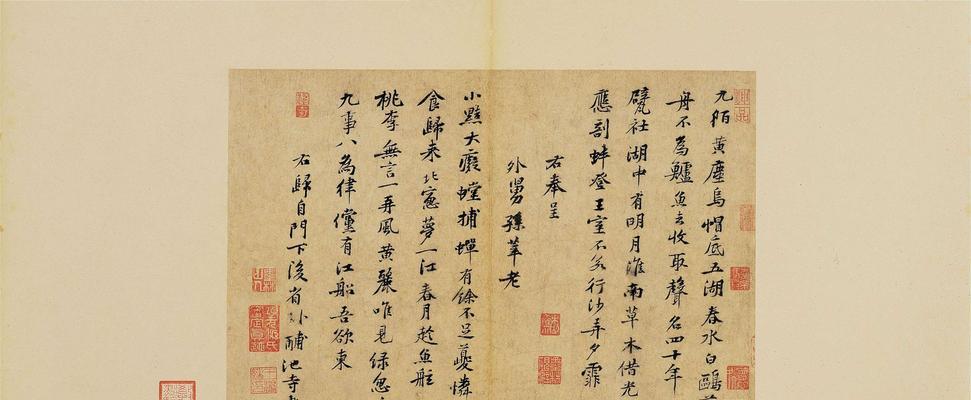 九陌黃塵烏帽底五湖春水白鷗
舟不為鱸魚去收取聲名四十年
甓社湖中有明月淮南草木借光
應剖蚌登王室不若行沙弄夕霏
右奉呈
外舅孫莘老
小黠大癡螳捕蟬有餘不足夔憐
食歸來北窻夢一江春月趁魚船
桃李無言一再風黃鸝唯見綠怱
九事八為律儻有江船吾欲東
右歸自門下後省卧酺池寺